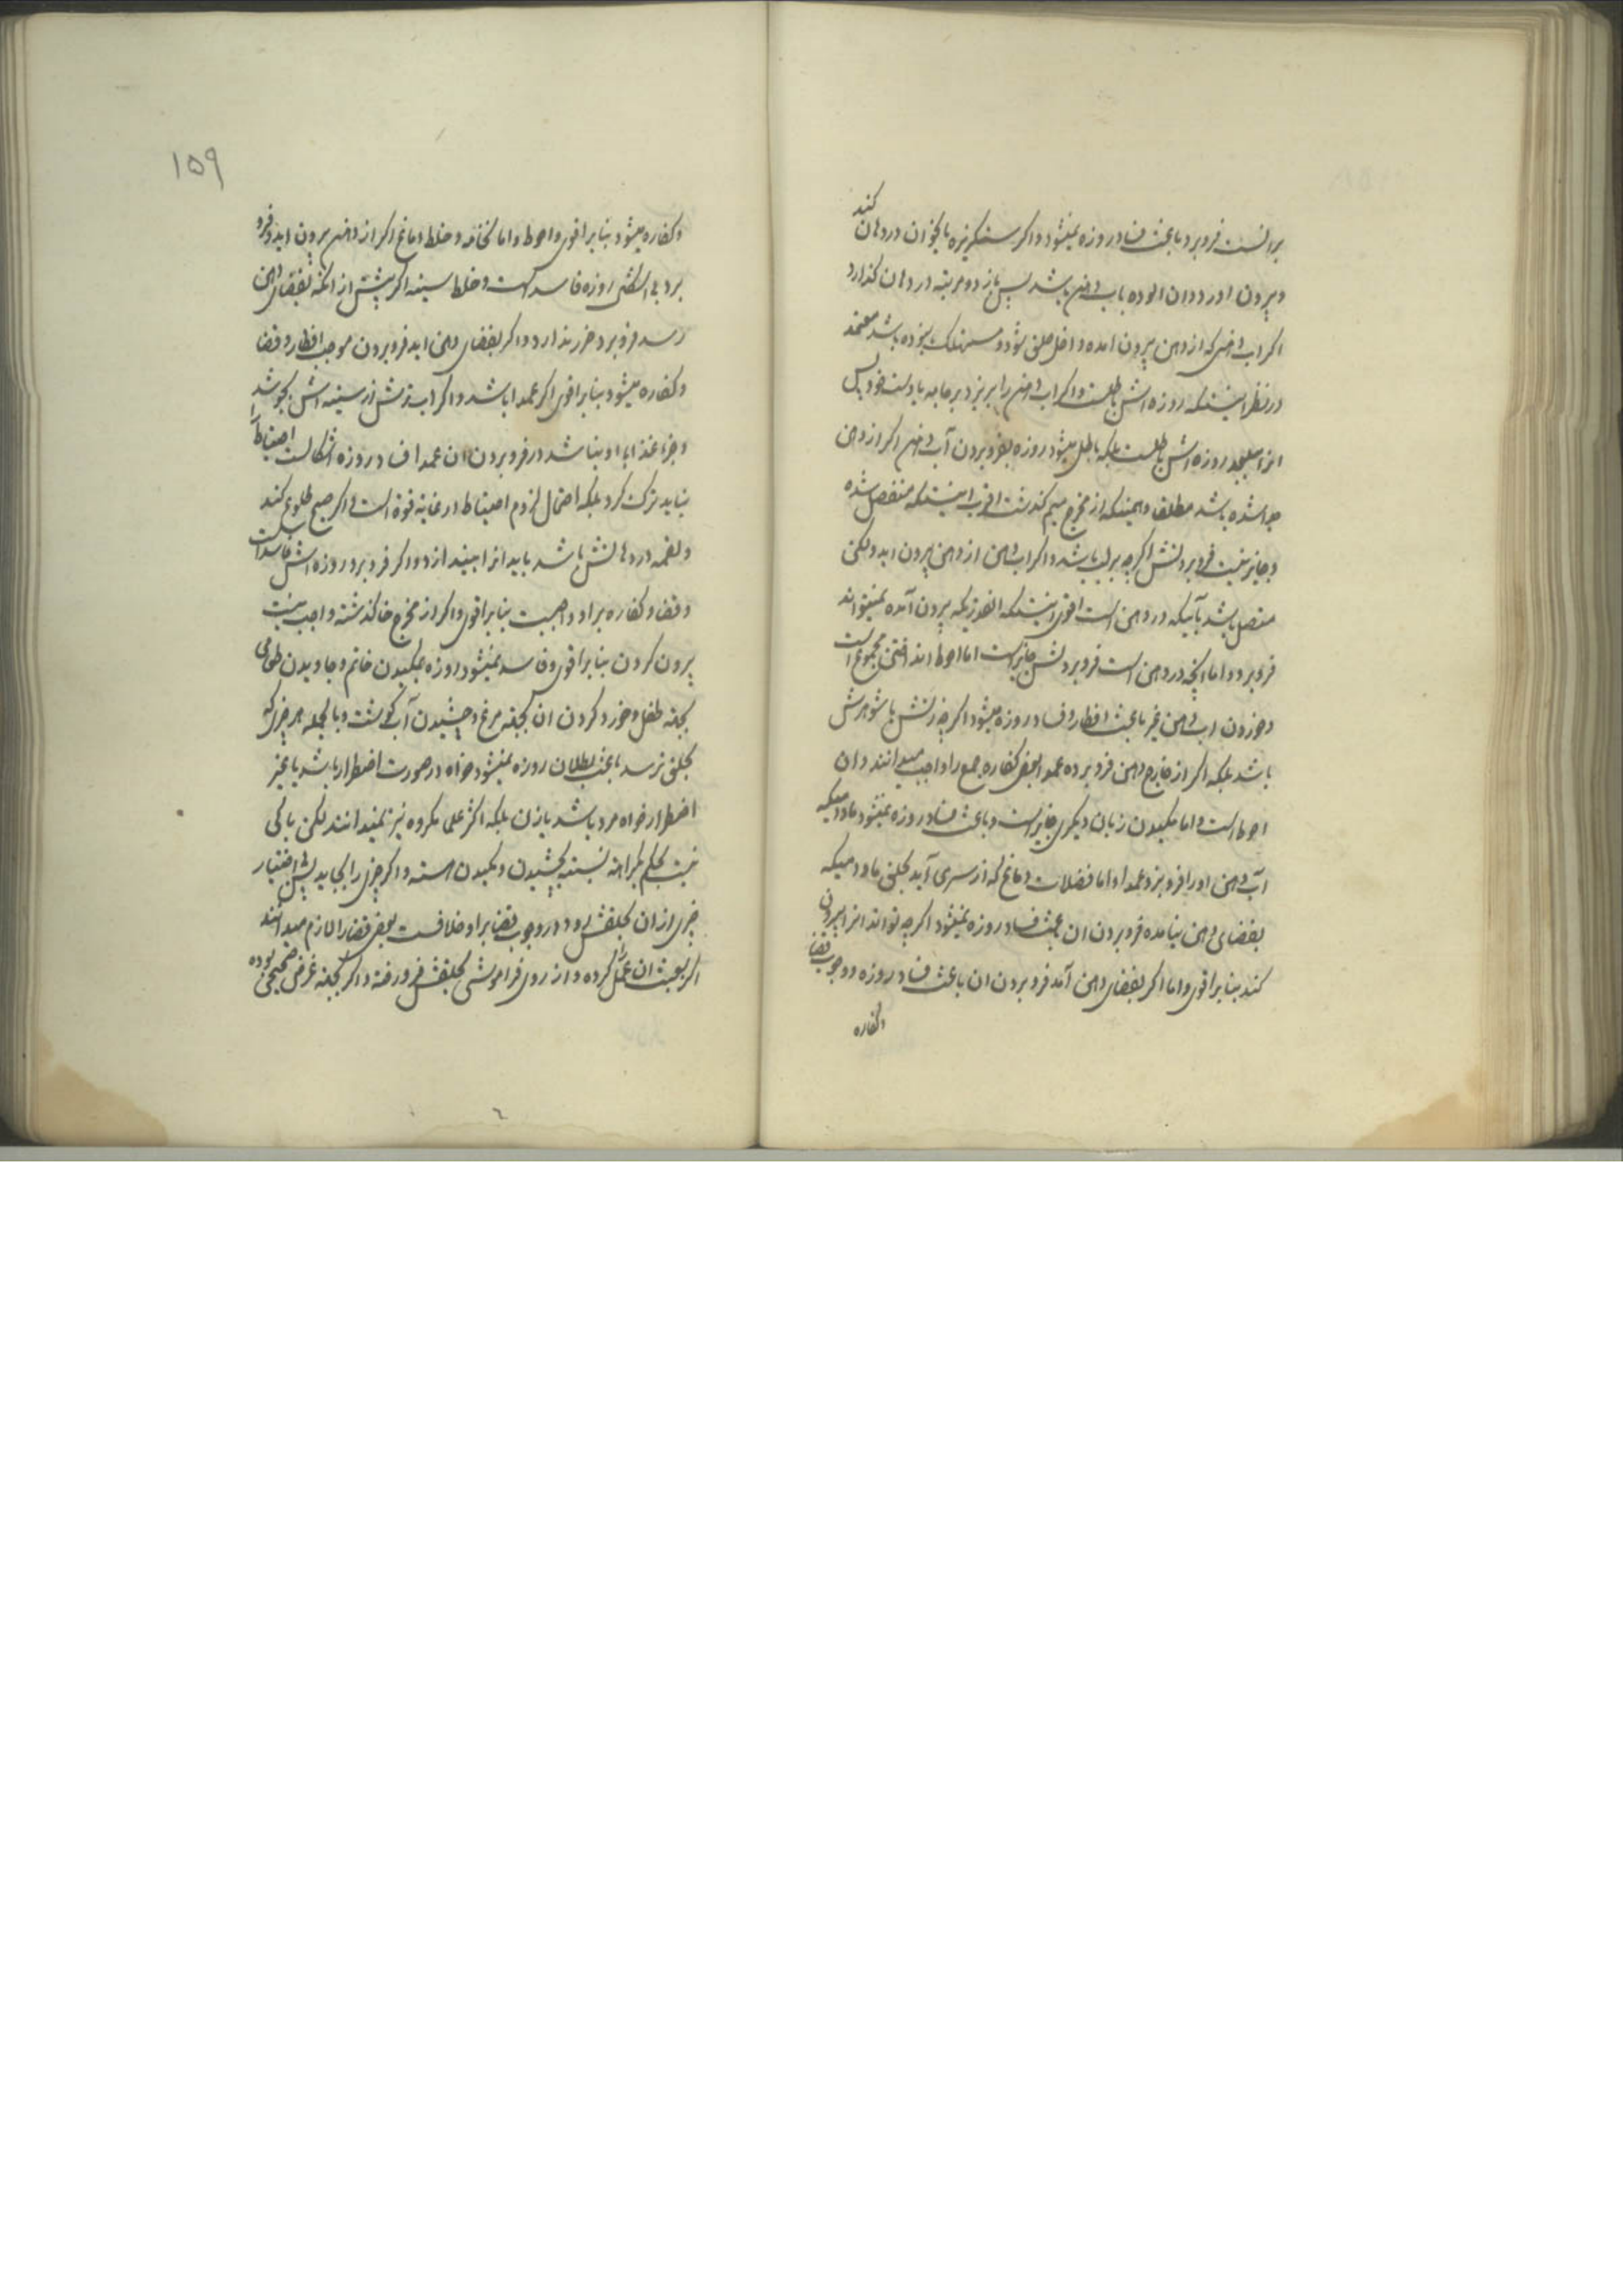 کند
برانست فرو برد باعث فساد روزه نمیشود و اکر سنکریزه یا نحو ان در دهان
و بیرون اورد و ان الوده باب دهن باشد پس باز دو مرتبه در دهان کذارد
اکر اب دهنی که از دهن بیرون امده داخل حلق شود و مستهلک نبوده باشد معتمد
در نظر اینستکه روزه اش باطلست و اکر اب دهن را بریزد بر جامه یا دست خود پس
انرا روزه اش باطلست بلکه باطل میشود روزه بفرو بردن آب دهن اکر از دهن
جدا شده باشد مطلقا و همینکه از مخرج میم کذشت اقرب اینستکه منفصل شده
و جایز نیست فرو بردنش اکرچه بر لب باشد و اکر اب دهن از دهن بیرون اید ولکن
متصل باشد بآنیکه در دهن است اقوی اینستکه انقدریکه بیرون آمده نمیتواند
فرو برد و اما انچه در دهن است فرو بردنش جایز است اما احوط انداختن مجموع است
و خوردن اب دهن غیر باعث افطار و فساد روزه میشود اکرچه زنش یا شوهرش
باشد بلکه اکر از خارج دهن فرو برده عمدا بعض کفاره جمع را واجب میدانند و ان
احوط است و اما مکیدن زبان دیکری جایز است و باعث فساد روزه نمیشود مادامیکه
آب دهن او را فرو نبرد عمدا و اما فضلات دماغ که از سر می آید بحلق مادامیکه
بفضای دهن نیامده فرو بردن ان باعث فساد روزه نمیشود اکرچه تواند انرا بیرون
کند بنابر اقوی و اما اکر بفضای دهن آمد فرو بردن ان باعث فساد روزه و وجوب قضا
و کفاره
۱۵۹
و کفاره میشود بنابر اقوی و احوط و اما نخامه و خلط دماغ اکر از دهن بیرون اید و فرو
برد روزه فاسد است و خلط سینه اکر پیش از انکه بفضای دهن
رسد فرو برد ضرر ندارد و اکر بفضای دهن اید فرو بردن موجب افطار و قضا
و کفاره میشود بنابر اقوی اکر عمدا باشد و اکر اب ترش از سینه اش بجوشد
و جزء غذا با او نباشد در فرو بردن ان عمدا فساد روزه اشکالست احتیاط را
نباید ترک کرد بلکه احتمال لزوم احتیاط در غایة قوة است و اکر صبح طلوع کند
و لقمه در دهانش باشد باید انرا بیندازد و اکر فرو برد روزه اش فاسد است
و قضا و کفاره بر او واجبست بنابر اقوی و اکر از مخرج خا کذشته واجب نیست
بیرون کردن بنابر اقوی و فاسد نمیشود روزه بمکیدن خاتم و جاویدن طعامی
بجهة طفل و خورد کردن ان بجهة مرغ و چشیدن آب کوشت و بالجمله هر چیزی که
بحلق نرسد باعث بطلان روزه نمیشود خواه در صورت اضطرار باشد یا غیر
اضطرار خواه مرد باشد یا زن بلکه اکثر علما مکروه نیز نمیدانند لکن باکی
نیست بحکم بکراهة نسبت بچشیدن و مکیدن هسته و اکر چیزی را بجاید پس بی اختیار
چیزی از ان بحلقش رود در وجوب قضا بر او خلافست بعض قضا را لازم میدانند
اکر بعبث ان عمل را کرده و از روی فراموشی بحلقش فرو رفته و اکر بجهة غرض صحیحی بوده